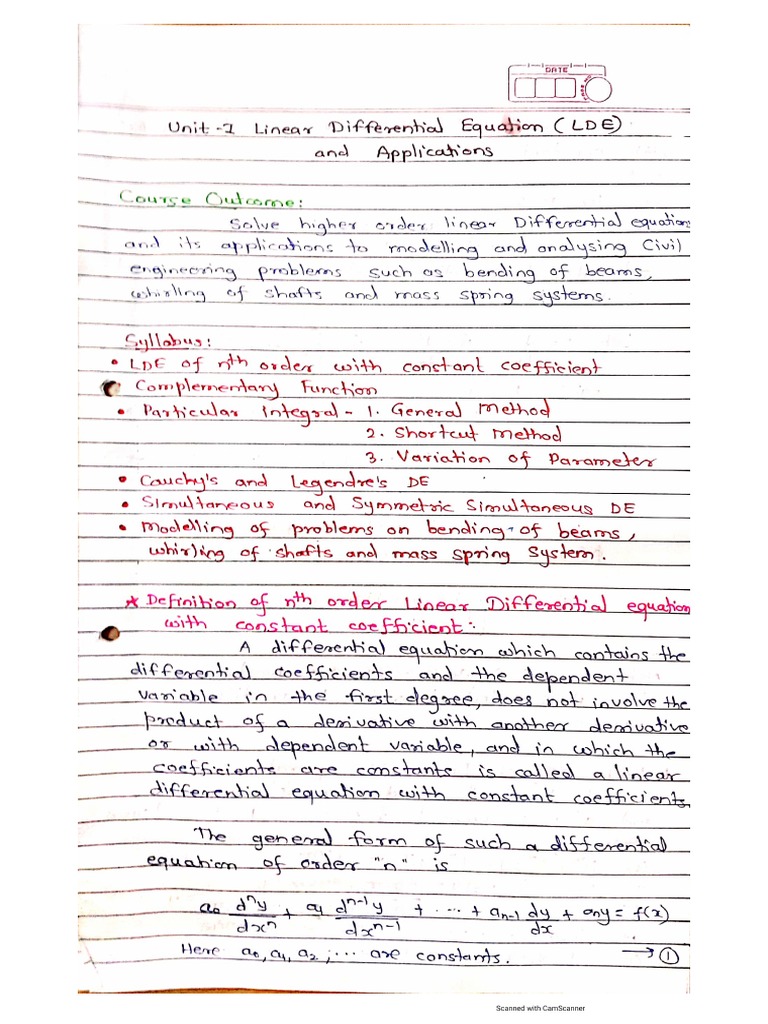 DATE
Unit-I Linear Differential Equation (LDE)
and Applications
Course Outcome:
Solve higher order linear Differential equations
and its applications to modelling and analysing Civil
engineering problems such as bending of beams,
whirling of shafts and mass spring systems.
Syllabus:
• LDE of nth order with constant coefficient
• Complementary Function
• Particular Integral - 1. General Method
2. Shortcut Method
3. Variation of Parameter
• Cauchy's and Legendre's DE
• Simultaneous and Symmetric Simultaneous DE
• Modelling of problems on bending of beams,
whirling of shafts and mass spring system.
* Definition of nth order Linear Differential equation
with constant coefficient:
A differential equation which contains the
differential coefficients and the dependent
variable in the first degree, does not involve the
product of a derivative with another derivative
or with dependent variable, and in which the
coefficients are constants is called a linear
differential equation with constant coefficients.
The general form of such a differential
equation of order "n" is
a₀ dⁿy/dxⁿ + a₁ dⁿ⁻¹y/dxⁿ⁻¹ + ... + aₙ₋₁ dy/dx + aₙy = f(x)
Here a₀, a₁, a₂, ... are constants. → ①
Scanned with CamScanner